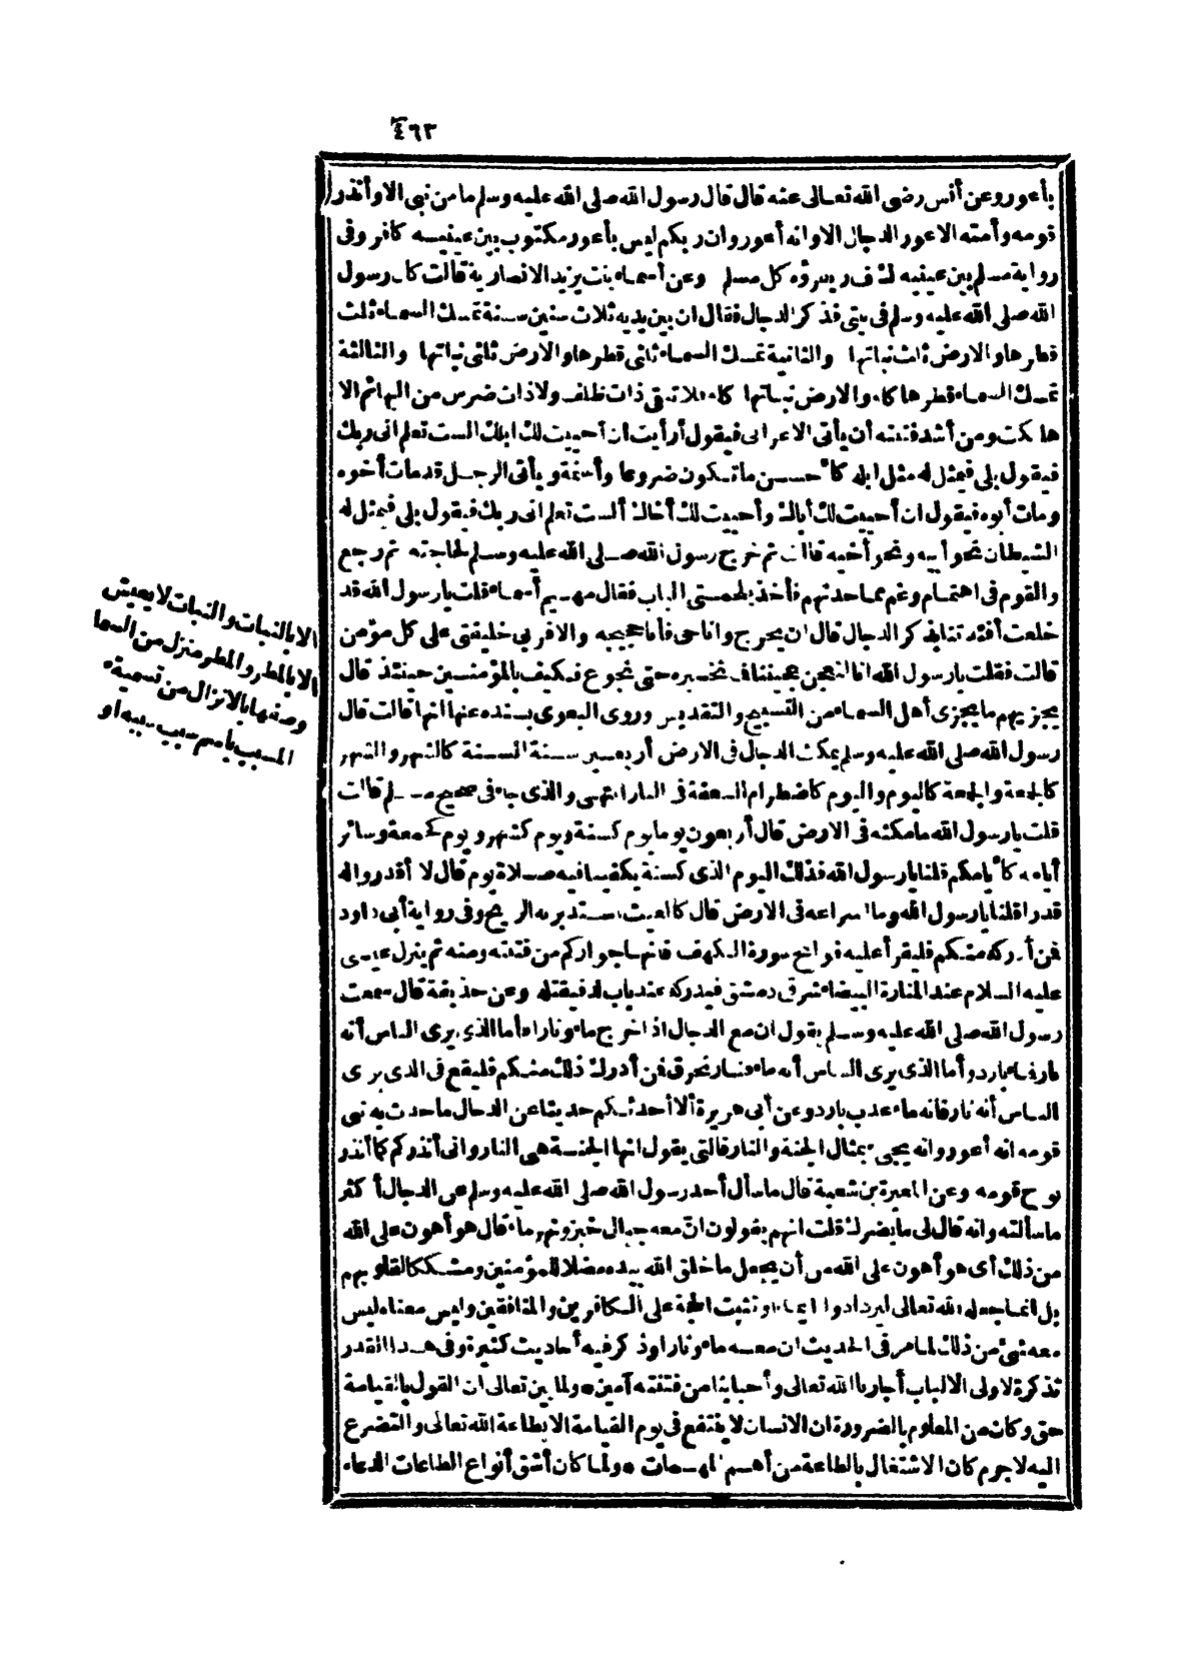 ٤٦٣
بأعور وعن أنس رضى الله تعالى عنه قال قال رسول الله صلى الله عليه وسلم ما من نبى الا وأنذر
قومه وأمته الاعور الدجال الا وانه أعور وان ربكم ليس بأعور مكتوب بين عينيسه كافر وفى
رواية مسلم بين عينيه ك ف ر يقرؤه كل مسلم وعن أسماء بنت يزيد الانصارية قالت كان رسول
الله صلى الله عليه وسلم فى بيتى فذكر الدجال فقال ان بين يديه ثلاث سنين سنة تمسك السماء ثلث
قطرها والارض ثلث نباتها والثانية تمسك السماء ثلثى قطرها والارض ثلثى نباتها والثالثة
تمسك السماء قطرها كله والارض نباتها كله فلا تبقى ذات ظلف ولا ذات ضرس من البهائم الا
هلكت ومن أشد فتنته أن يأتى الاعرابى فيقول أرأيت ان أحييت لك ابلك الست تعلم انى ربك
فيقول بلى فيمثل له مثل ابله كأحسن ما تكون ضروعا وأسنمة ويأتى الرجل قد مات أخوه
ومات أبوه فيقول ان أحييت لك أباك وأحييت لك أخاك ألست تعلم انى ربك فيقول بلى فيمثل له
الشيطان نحو أبيه ونحو أخيه قالت ثم خرج رسول الله صلى الله عليه وسلم لحاجته ثم رجع
والقوم فى اهتمام وغم مما حدثهم فأخذ بلحمتى الباب فقال مهيم أسماء قلت يا رسول الله قد
خلعت أفئدتنا بذكر الدجال قال ان يخرج وانا حى فأنا حجيجه والا فربى خليفتى على كل مؤمن
قالت فقلت يا رسول الله انا لنعجن عجيننا فما نخبزه حتى نجوع فكيف بالمؤمنين حينئذ قال
يجزيهم ما يجزى أهل السماء من التسبيح والتقديس وروى البغوى بسنده عنها انها قالت قال
رسول الله صلى الله عليه وسلم يمكث الدجال فى الارض أربعين سنة السنة كالشهر والشهر
كالجمعة والجمعة كاليوم واليوم كاضطرام السعفة فى النار انتهى والذى جاء فى صحيح مسلم قالت
قلت يا رسول الله ما مكثه فى الارض قال أربعون يوما يوم كسنة ويوم كشهر ويوم كجمعة وسائر
أيامه كأيامكم قلنا يا رسول الله فذلك اليوم الذى كسنة يكفينا فيه صلاة يوم قال لا أقدروا له
قدرا قلنا يا رسول الله وما اسراعه فى الارض قال كالغيث استدبرته الريح وفى رواية أبى داود
فمن أدركه منكم فليقرأ عليه فواتح سورة الكهف فانها جواركم من فتنته ومنه ثم ينزل عيسى
عليه السلام عند المنارة البيضاء شرقى دمشق فيدركه عند باب لد فيقتله وعن حذيفة قال سمعت
رسول الله صلى الله عليه وسلم يقول ان مع الدجال اذا خرج ماء ونارا فأما الذى يرى الناس أنه
نار فماء بارد وأما الذى يرى الناس أنه ماء فنار تحرق فمن أدرك ذلك منكم فليقع فى الذى يرى
الناس أنه نار فانه ماء عذب بارد وعن أبى هريرة ألا أحدثكم حديثا عن الدجال ما حدث به نبى
قومه انه أعور وانه يجىء بمثال الجنة والنار فالتى يقول انها الجنة هى النار وانى أنذركم كما أنذر
نوح قومه وعن المغيرة بن شعبة قال ما سأل أحد رسول الله صلى الله عليه وسلم عن الدجال أكثر
ما سألته وانه قال لى ما يضرك قلت انهم يقولون ان معه جبال خبز ونهر ماء قال هو أهون على الله
من ذلك أى هو أهون على الله من أن يجعل ما خلق الله بيده مضلا للمؤمنين ومشككا لقلوبهم
بل انما جعله الله تعالى ليزدادوا ايمانا وتثبت الحجة على الكافرين والمنافقين وليس معناه ليس
معه شئ من ذلك لما مر فى الحديث ان معه ماء ونارا وذكر فيه أحاديث كثيرة وفى هذا القدر
تذكرة لاولى الالباب أجارنا الله تعالى وأحبابنا من فتنته آمين ولما بين تعالى ان القول بالقيامة
حق وكان من المعلوم بالضرورة ان الانسان لا ينتفع فى يوم القيامة الا بطاعة الله تعالى والتضرع
اليه لا جرم كان الاشتغال بالطاعة من أهم المهمات ولما كان أشق أنواع الطاعات الدعاء
الا بالنبات والنبات لا يعيش
الا بالمطر والمطر منزل من السما
وصفها بالانزال من تسمية
المسبب باسم سبب سببه او